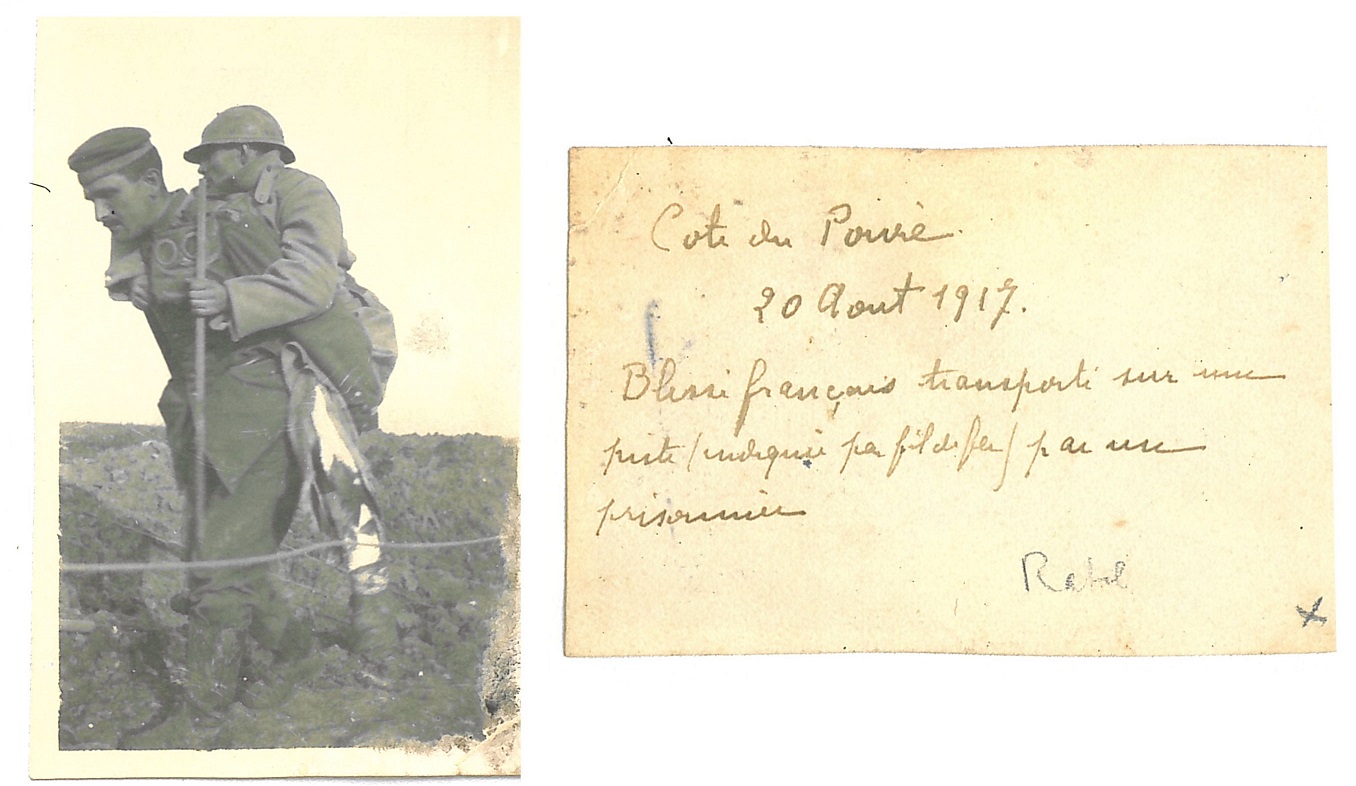 Cote du Poivre
20 Aout 1917.
Blessé français transporté sur une
piste (indiquée par fil de fer) par un
prisonnier
Ratel